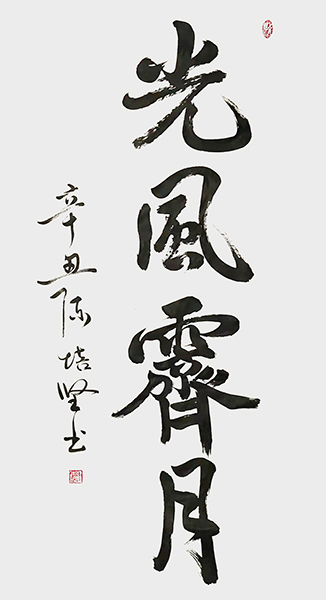 光風霽月
辛丑陈培坚书